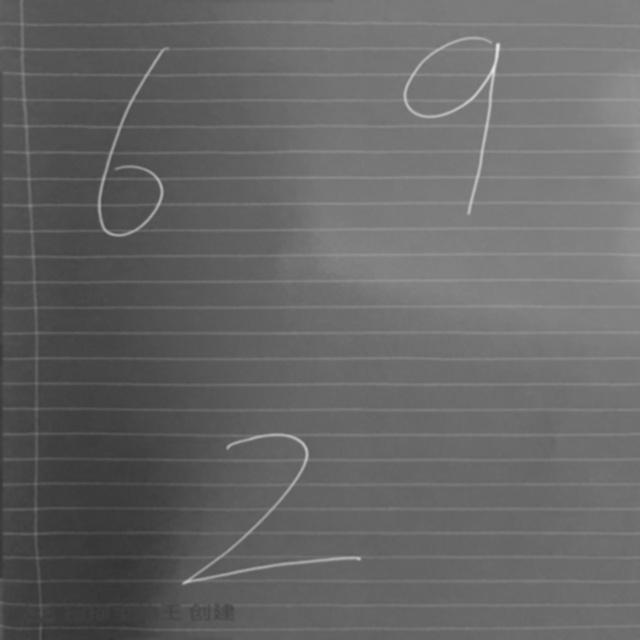 6 9
2
王 创建